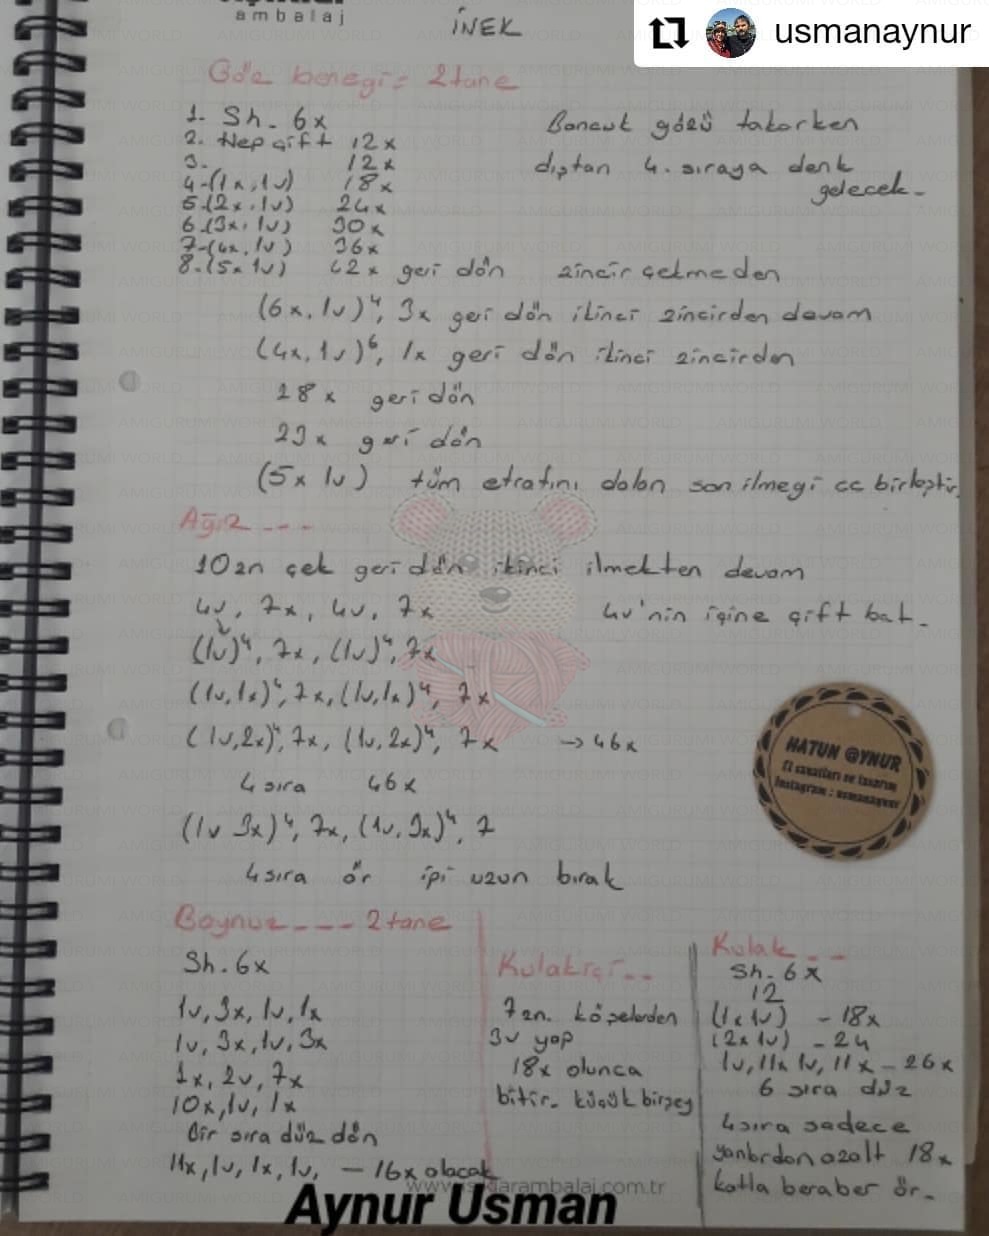 ambalaj
İNEK
usmanaynur
Göz benegi = 2tane
1. Sh. 6x
2. Hep çift 12x
3. 12x
4-(1x,1v) 18x
5.(2x.1v) 24x
6.(3x,1v) 30x
7-(4x,1v) 36x
8.(5x1v) 42x geri dön zincir çekmeden
Boncuk gözü takarken
dıştan 4. sıraya denk
gelecek-
(6x,1v)⁴, 3x geri dön ikinci zincirden devam
(4x,1v)⁶, 1x geri dön ikinci zincirden
28x geri dön
23x geri dön
(5x 1v) tüm etrafını dolan son ilmegi cc birleştir.
Ağız ---
10zn çek geri dön ikinci ilmekten devam
4v, 7x, 4v, 7x 4v'nin içine çift bat-
(1v)⁴, 7x, (1v)⁴, 7x
(1v,1x)⁴, 7x, (1v,1x)⁴, 7x
(1v,2x)⁴, 7x, (1v,2x)⁴, 7x → 46x
4 sıra 46x
(1v 3x)⁴, 7x, (1v,3x)⁴, 7
4sıra ör ipi uzun bırak
HATUN @YNUR
El sanatları ve tasarım
Instagram : usmanaynur
Boynuz ---- 2tane
Sh. 6x
1v, 3x, 1v, 1x
1v, 3x, 1v, 3x
1x, 2v, 7x
10x, 1v, 1x
Bir sıra düz dön
11x, 1v, 1x, 1v, - 16x olacak
Kulak içi --
7zn. köşelerden
3v yap
18x olunca
bitir. küçük birşey
Kulak --
Sh. 6x
12
(1x 1v) - 18x
(2x 1v) - 24
1v, 11x 1v, 11x - 26x
6 sıra düz
4sıra sadece
yanlardan azalt 18x
katla beraber ör-
Aynur Usman